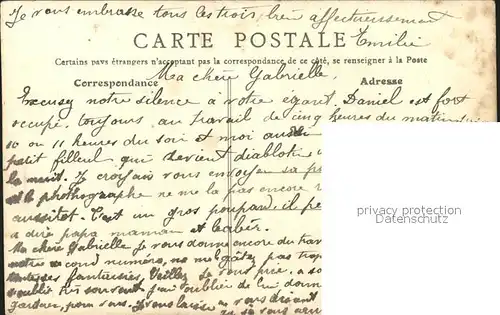 Je vous embrasse tous les trois bien affectueusement
Emilie
CARTE POSTALE
Certains pays étrangers n'acceptant pas la correspondance de ce côté, se renseigner à la Poste
Correspondance
Adresse
Ma chère Gabrielle,
Excusez notre silence à votre égard. Daniel est fort
occupé, toujours au travail de cinq heures du matin
10 ou 11 heures du soir et moi aussi
petit filleul qui devient diablotin
la nuit. Je croyais vous envoyer sa
et le photographe ne me l'a pas encore
aussitôt. C'est un gros poupard, il
à dire papa maman et
Ma chère Gabrielle je vous donne encore du
votre second numéro, ne me gâtez pas trop
fantaisies, Veillez je vous prie, a
oublié très souvent j'ai oublié de lui
garder, pour vous. Je vous laisse en vous disant
privacy protection
Datenschutz